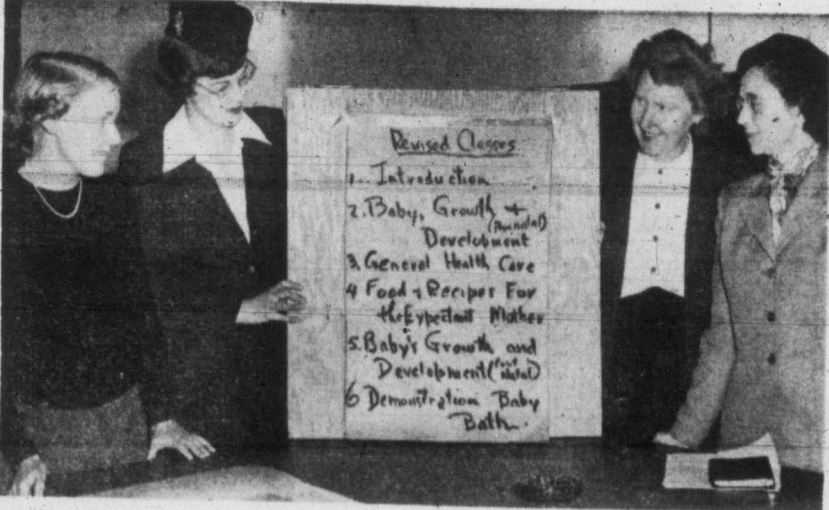 Revised Classes
1. Introduction
2. Baby, Growth +
(Prenatal)
Development
3. General Health Care
4 Food + Recipes For
the Expectant Mother
5. Baby's Growth and
Development (Post Natal)
6 Demonstration Baby
Bath.